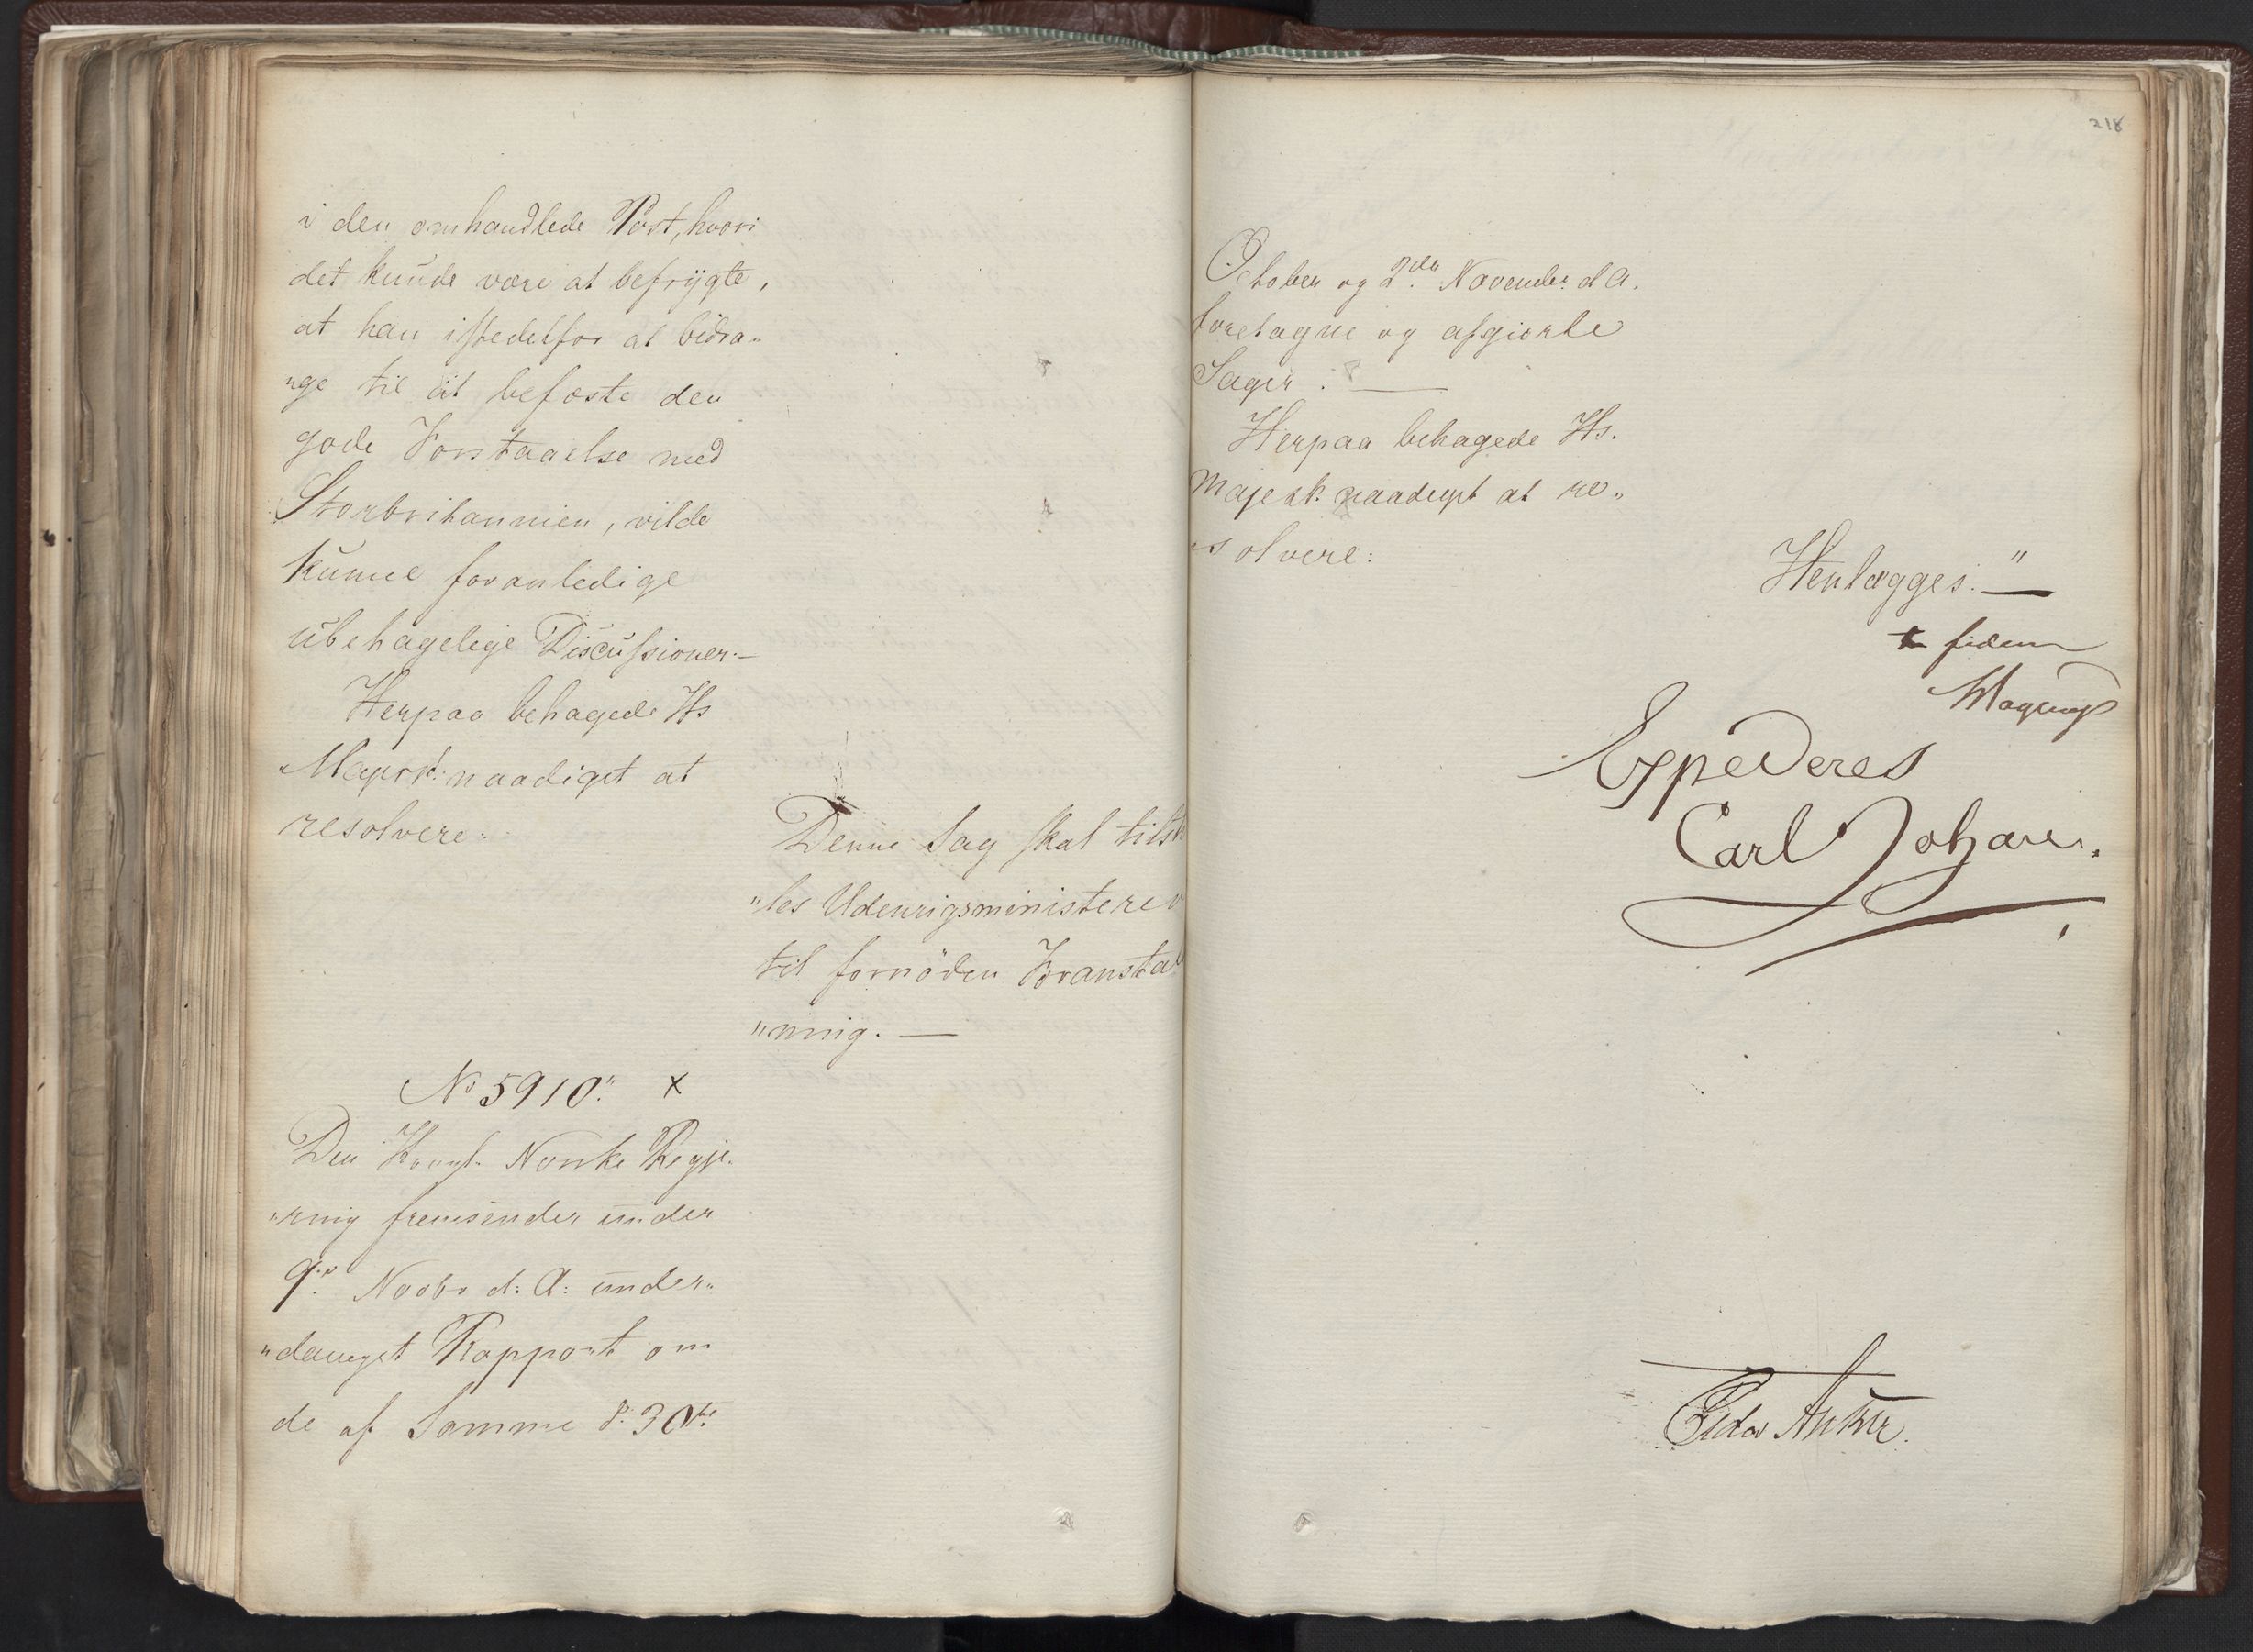 i den omhandlede Post, hvori
det kunde være at befrygte,
at han istedetfor at bidra„
„ge til at befæste den
gode Forstaaelse med
Storbritannien, vilde
kunne foranledige
ubehagelige Discussioner.—
Herpaa behagede Hs
Majest: naadigst at
resolvere:
Denne Sag skal tilst
„les Udenrigsministeren
til fornöden Foranstal
„ning. —
No 5910. x
Den Kongl. Norske Regje„
„ring fremsender under
9de Novbr d: A: under„
„danigst Rapport om
de af Samme d: 30te
218
October og 2den November d. A.
foretagne og afgiorte
Sager. —
Herpaa behagede Hs.
Majest. naadigst at re„
„solvere:
Henlægges. —
fidem
Expederes
Carl Johan.
Peder Anker.